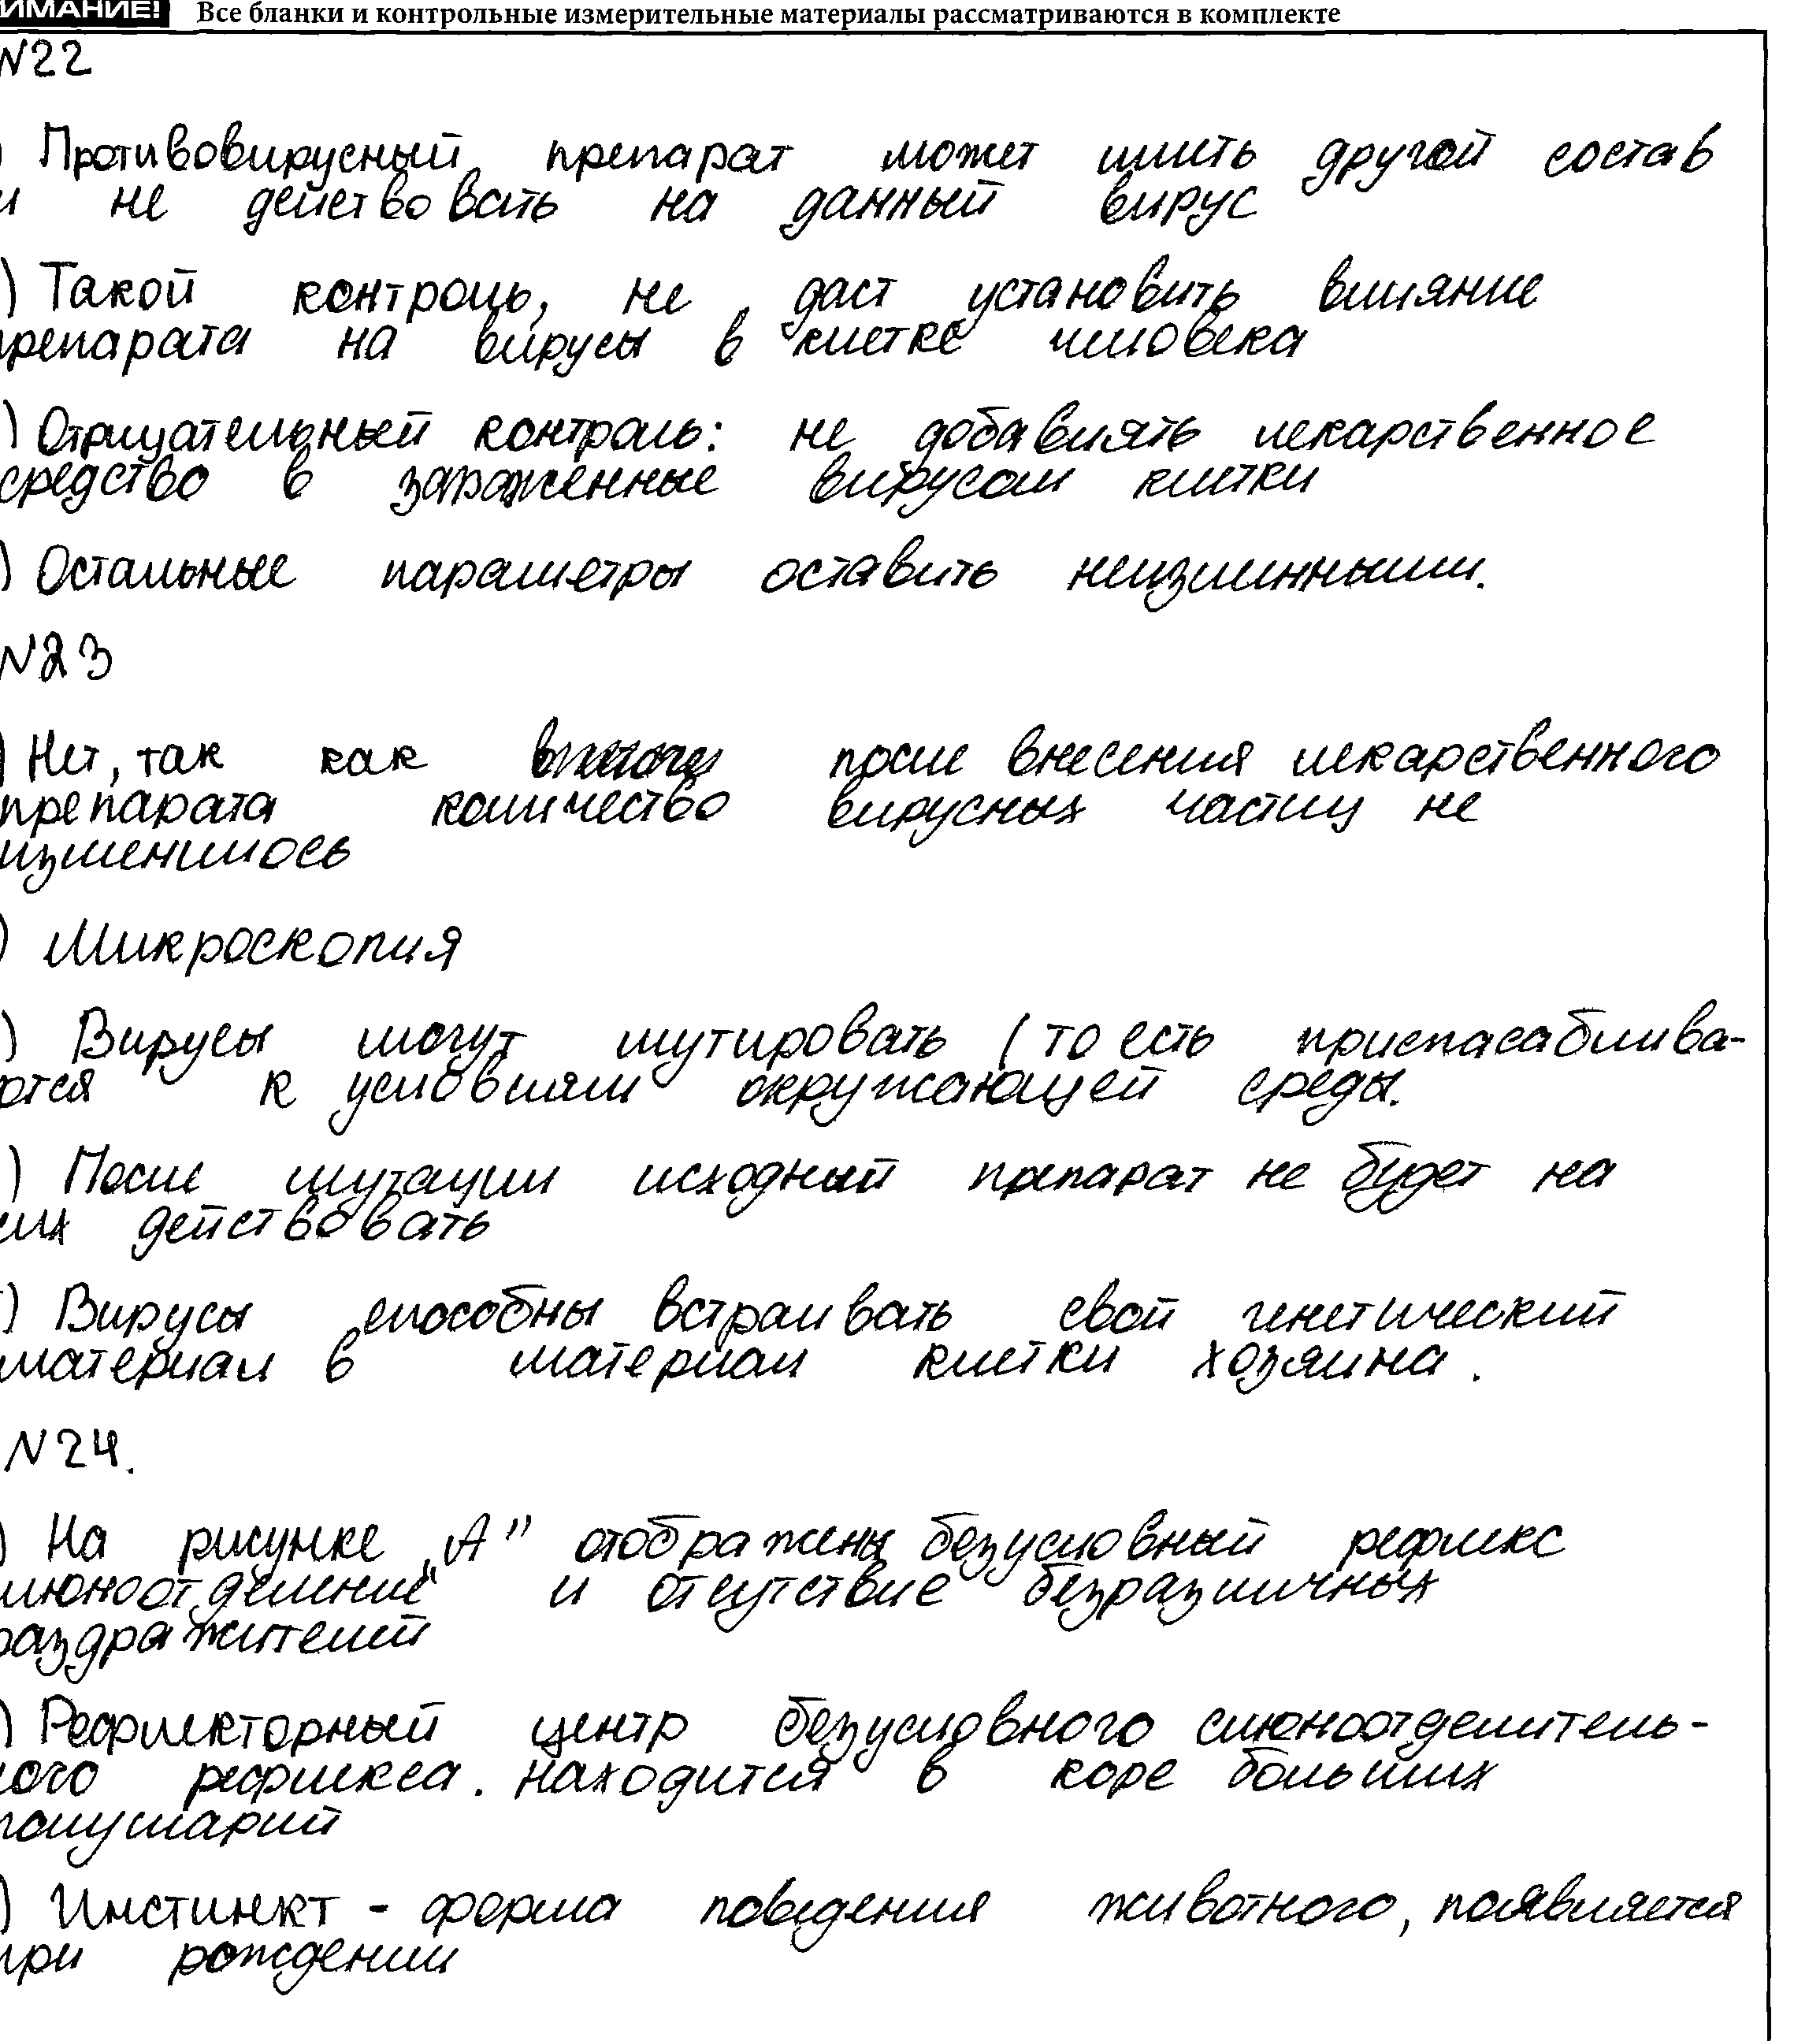 ИМАНИЕ! Все бланки и контрольные измерительные материалы рассматриваются в комплекте
№22
) Противовирусный препарат может иметь другой состав
и не действовать на данный вирус
) Такой контроль, не даст установить влияние
препарата на вирусы в клетке человека
) Отрицательный контроль: не добавлять лекарственное
средство в зараженные вирусом клетки
) Остальные параметры оставить неизменными.
№23
) Нет, так как после внесения лекарственного
препарата количество вирусных частиц не
изменилось
) Микроскопия
) Вирусы могут мутировать (то есть приспасаблива-
ются к условиям окружающей среды.
) После мутации исходный препарат не будет на
них действовать
) Вирусы способны встраивать свой генетический
материал в материал клетки хозяина.
№24.
) На рисунке „А" отображены безусловный рефлекс
слюноотделение" и отсутствие безразличных
раздражителей
) Рефлекторный центр безусловного слюноотделитель-
ного рефлекса. находится в коре больших
полушарий
) Инстинкт - форма поведения животного, появляется
при рождении